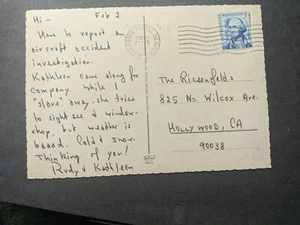 Hi —
Feb 2
Have to report an
aircraft accident
investigation.
Kathleen came along for
company. While I
"slave" away, she tries
to sightsee & window-
shop, but weather is
baaad. Cold & snow.
Thinking of you!
Rudy & Kathleen
The Riesenfelds
825 No. Wilcox Ave.
Hollywood, CA
90038